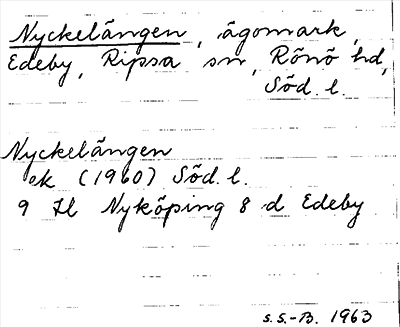 Nyckelängen, ägomark,
Edeby, Ripsa sn, Rönö hd,
Söd. l.
Nyckelängen
ek (1960) Söd. l.
9 Il Nyköping 8 d Edeby
S.S.-B. 1963